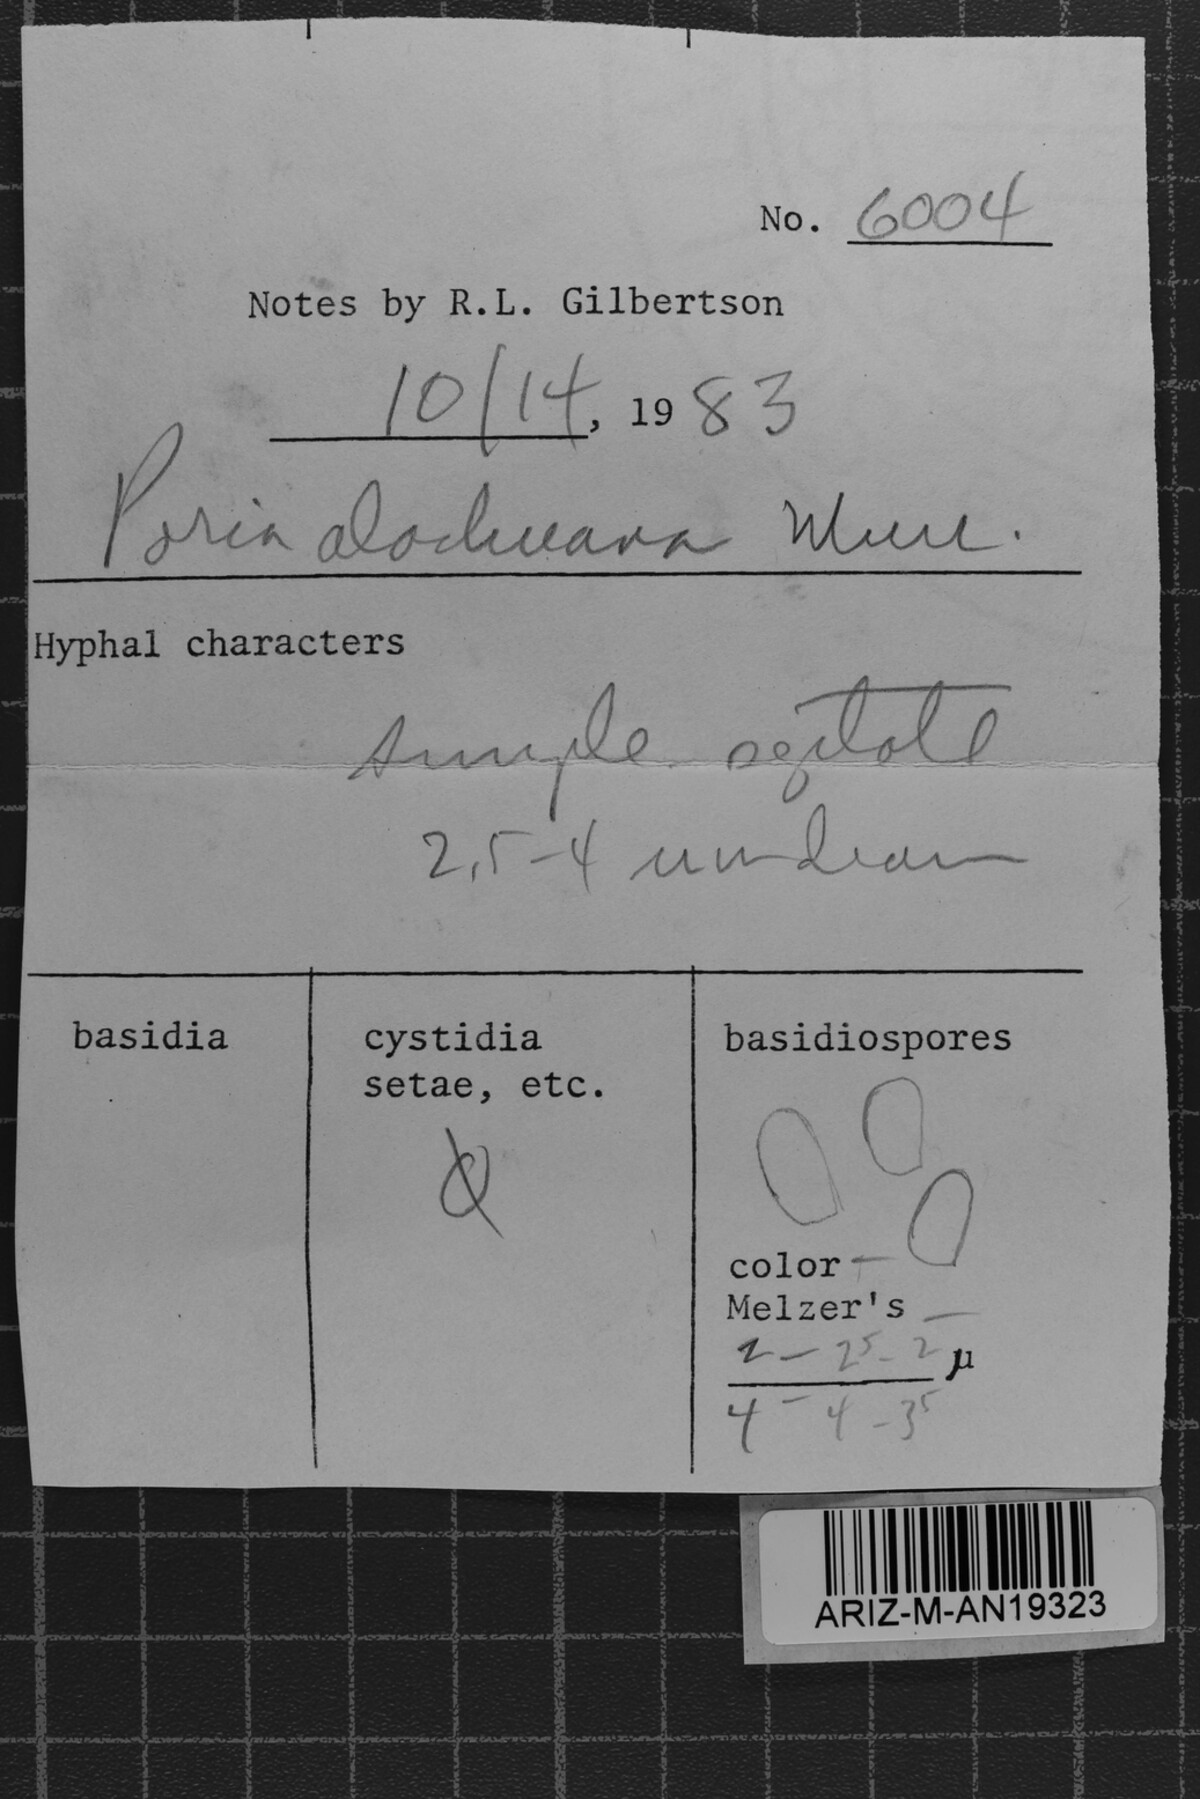 No. 6004
Notes by R.L. Gilbertson
10/14, 1983
Poria alachuana Murr.
Hyphal characters
simple septate
2.5-4 um diam
basidia
cystidia
setae, etc.
basidiospores
color –
Melzer's –
2 – 2⁵ - 2 µ
4 – 4 – 3⁵
ARIZ-M-AN19323